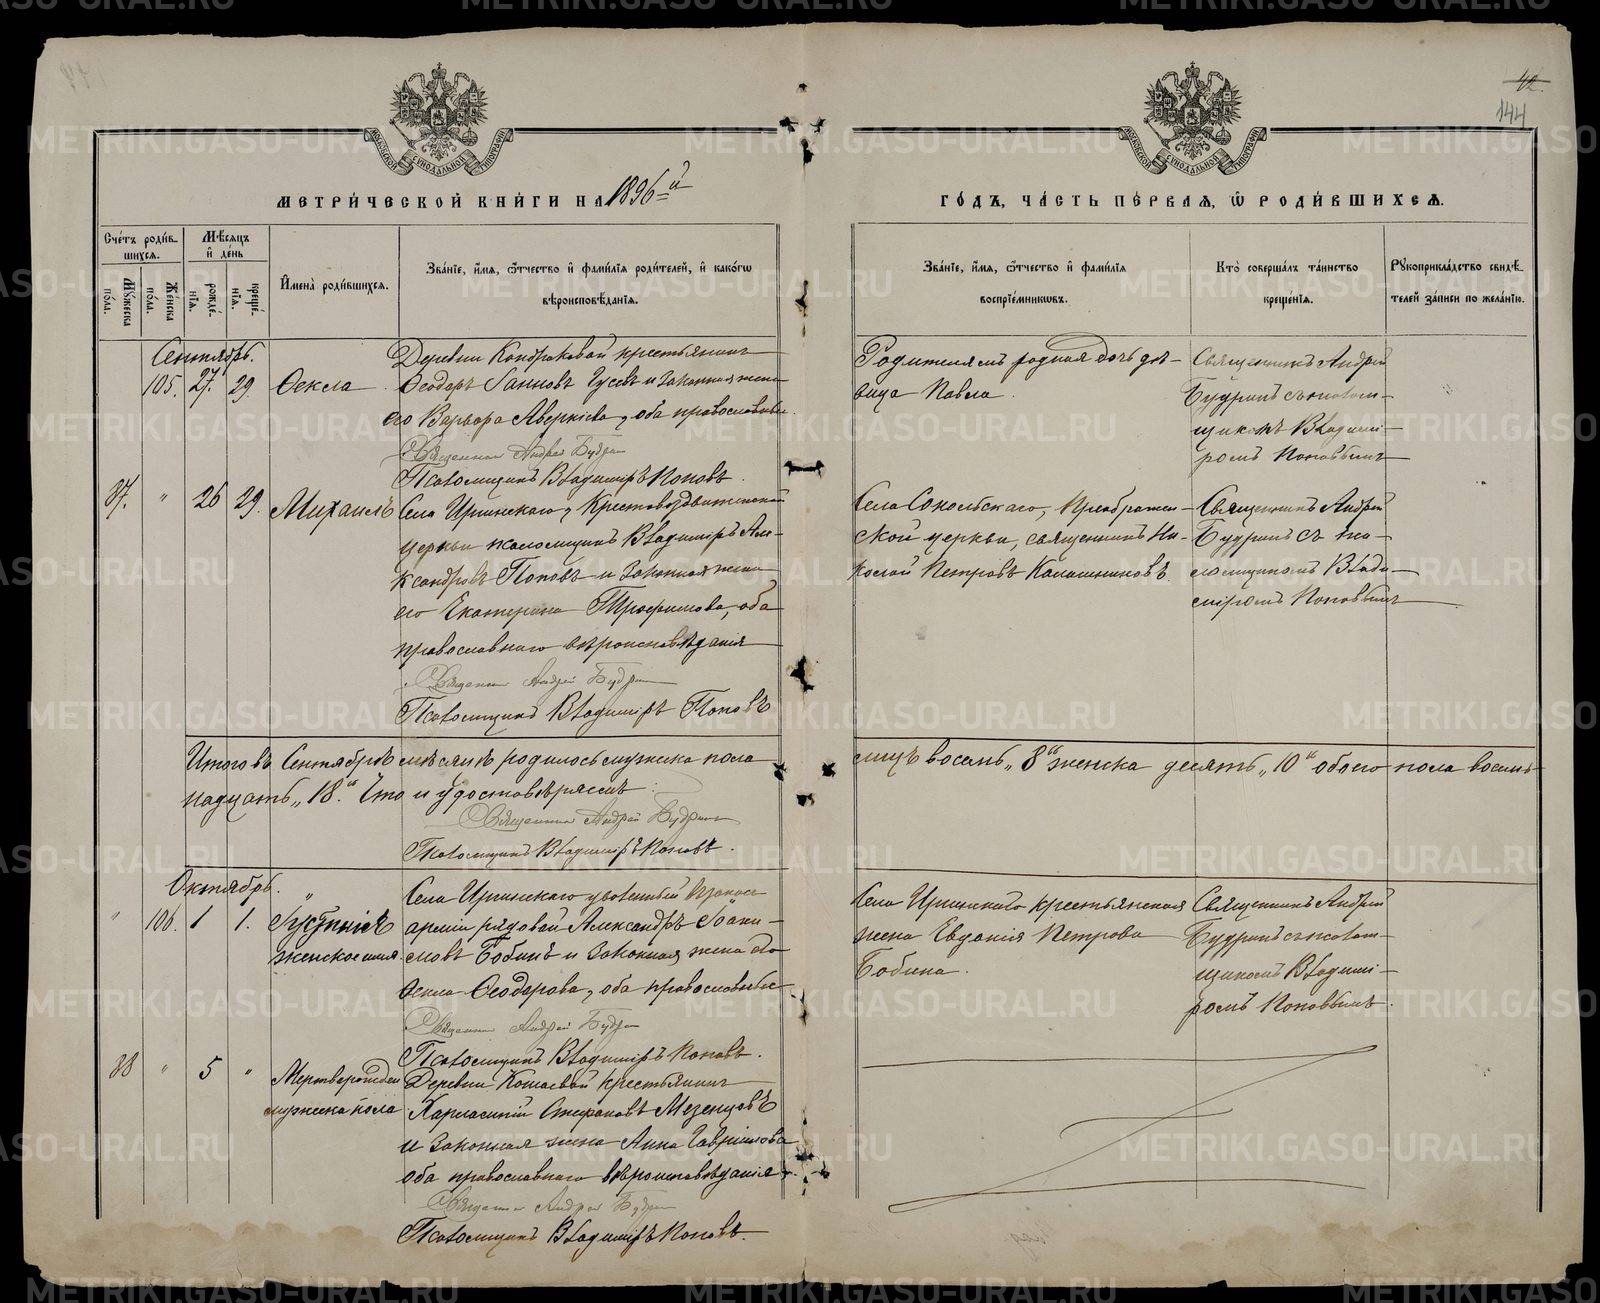 42.
144
МЕТРИЧЕСКОЙ КНИГИ НА 1896й
ГОДЪ, ЧАСТЬ ПЕРВАЯ, Ѡ РОДИВШИХСЯ.
Счетъ родив-
шихся.
Мужеска пола.
Женска пола.
Мѣсяцъ
и день
рожде-
нія.
креще-
нія.
Имена родившихся.
Званіе, имя, отчество и фамилія родителей, и какогѡ
вѣроисповѣданія.
Званіе, имя, отчество и фамилія
воспріемниковъ.
Кто совершалъ таинство
крещенія.
Рукоприкладство свидѣ-
телей записи по желанію.
Сентябрь.
105. 27. 29. Ѳекла
Деревни Кондраковой крестьянинъ
Ѳеодоръ Іоанновъ Гусевъ и законная жена
его Варвара Аверкіева, оба православные
Священникъ Андрей Будринъ
Псаломщикъ Владиміръ Поповъ.
Родителямъ родная дочь дѣ-
вица Павла.
Священникъ Андрей
Будринъ съ псалом-
щикомъ Владимі-
ромъ Поповымъ
37. " 26 29. Михаилъ
Села Иргинскаго, Крестовоздвиженской
церкви псаломщикъ Владиміръ Але-
ксандровъ Поповъ и законная жена
его Екатерина Трофимова, оба
православнаго вѣроисповѣданія
Священникъ Андрей Будринъ
Псаломщикъ Владиміръ Поповъ
Села Сокольскаго, Преображен-
ской церкви, священникъ Ни-
колай Петровъ Калашниковъ.
Священникъ Андрей
Будринъ съ пса-
ломщикомъ Влади-
міромъ Поповымъ
Итого въ Сентябрѣ мѣсяцѣ родилось мужска пола
восемь "8" женска десять "10" обоего пола восемь-
надцать "18". Что и удостовѣряемъ:
Священникъ Андрей Будринъ
Псаломщикъ Владиміръ Поповъ.
Октябрь.
" 106. 1 1. Іустинія
женское имя.
Села Иргинскаго уволенный въ запасъ
арміи рядовой Александръ Іоаки-
мовъ Бобинъ и законная жена его
Ѳекла Ѳеодорова, оба православные
Священникъ Андрей Будринъ
Псаломщикъ Владиміръ Поповъ.
Села Иргинскаго крестьянская
жена Евдокія Петрова
Бобина.
Священникъ Андрей
Будринъ съ псалом-
щикомъ Владимі-
ромъ Поповымъ.
38 " 5 " Мертворожден
мужеска пола
Деревни крестьянинъ
Харлампій Стефановъ Мезенцовъ
и законная жена Анна Гавріилова
оба православнаго вѣроисповѣданія.
Священникъ Андрей Будринъ
Псаломщикъ Владиміръ Поповъ.
METRIKI.GASO-URAL.RU